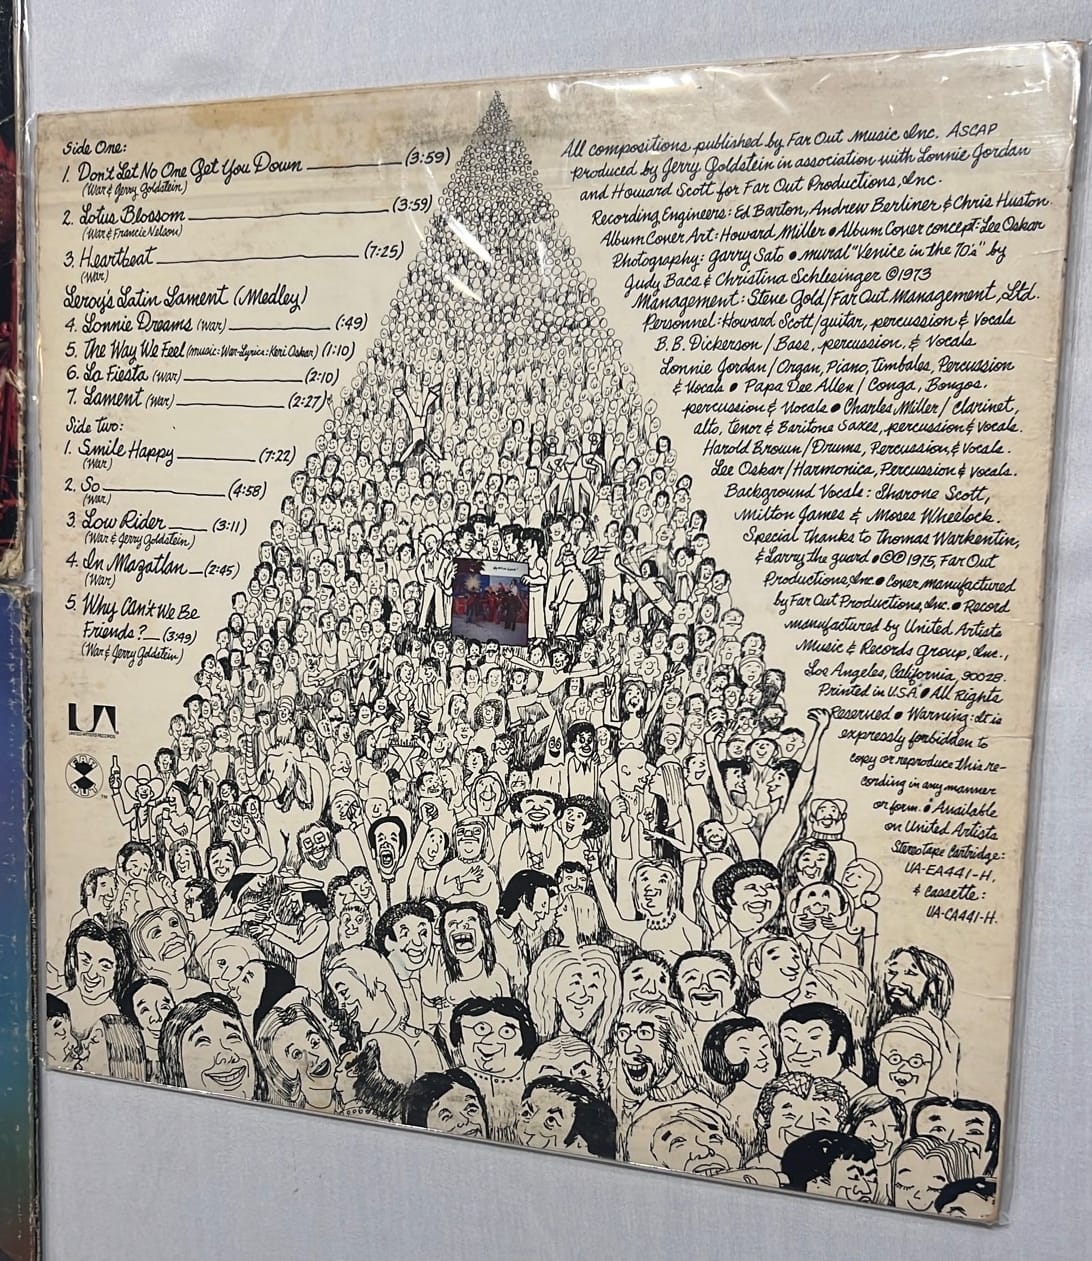 Side One:
1. Don't Let No One Get You Down (3:59)
(War & Jerry Goldstein)
2. Lotus Blossom (3:59)
(War & Francie Nelson)
3. Heartbeat (7:25)
(War)
Leroy's Latin Lament (Medley)
4. Lonnie Dreams (War) (:49)
5. The Way We Feel (music: War-Lyrics: Keri Oskar) (1:10)
6. La Fiesta (War) (2:10)
7. Lament (War) (2:27)
Side Two:
1. Smile Happy (7:22)
(War)
2. So (4:58)
(War)
3. Low Rider (3:11)
(War & Jerry Goldstein)
4. In Mazatlan (2:45)
(War)
5. Why Can't We Be
Friends? (3:49)
(War & Jerry Goldstein)
UA
UNITED ARTISTS RECORDS
TM
All compositions published by Far Out Music Inc. ASCAP
Produced by Jerry Goldstein in association with Lonnie Jordan
and Howard Scott for Far Out Productions, Inc.
Recording Engineers: Ed Barton, Andrew Berliner & Chris Huston.
Album Cover Art: Howard Miller • Album Cover concept: Lee Oskar
Photography: Garry Sato • mural "Venice in the 70's" by
Judy Baca & Christina Schlesinger ©1973
Management: Steve Gold/Far Out Management, Ltd.
Personnel: Howard Scott/guitar, percussion & Vocals
B.B. Dickerson/Bass, percussion, & Vocals
Lonnie Jordan/Organ, Piano, timbales, Percussion
& Vocals • Papa Dee Allen/Conga, Bongos,
percussion & Vocals • Charles Miller/Clarinet,
alto, tenor & Baritone Saxes, percussion & Vocals.
Harold Brown/Drums, Percussion, & Vocals.
Lee Oskar/Harmonica, Percussion & Vocals.
Background Vocals: Sharone Scott,
Milton James & Moses Wheelock.
Special thanks to Thomas Warkentin,
& Larry the guard • ©℗ 1975, Far Out
Productions, Inc • Cover manufactured
by Far Out Productions, Inc. • Record
manufactured by United Artists
Music & Records Group, Inc.,
Los Angeles, California, 90028.
Printed in U.S.A. • All Rights
Reserved • Warning: It is
expressly forbidden to
copy or reproduce this re-
cording in any manner
or form. • Available
on United Artists
Stereotape Cartridge:
UA-EA441-H.
& Cassette:
UA-CA441-H.